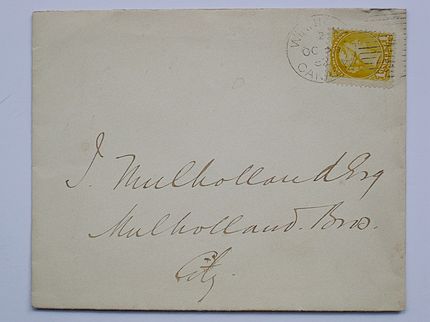 OC
CAN
J. Mulholland Esq
Mulholland. Bros.
City.